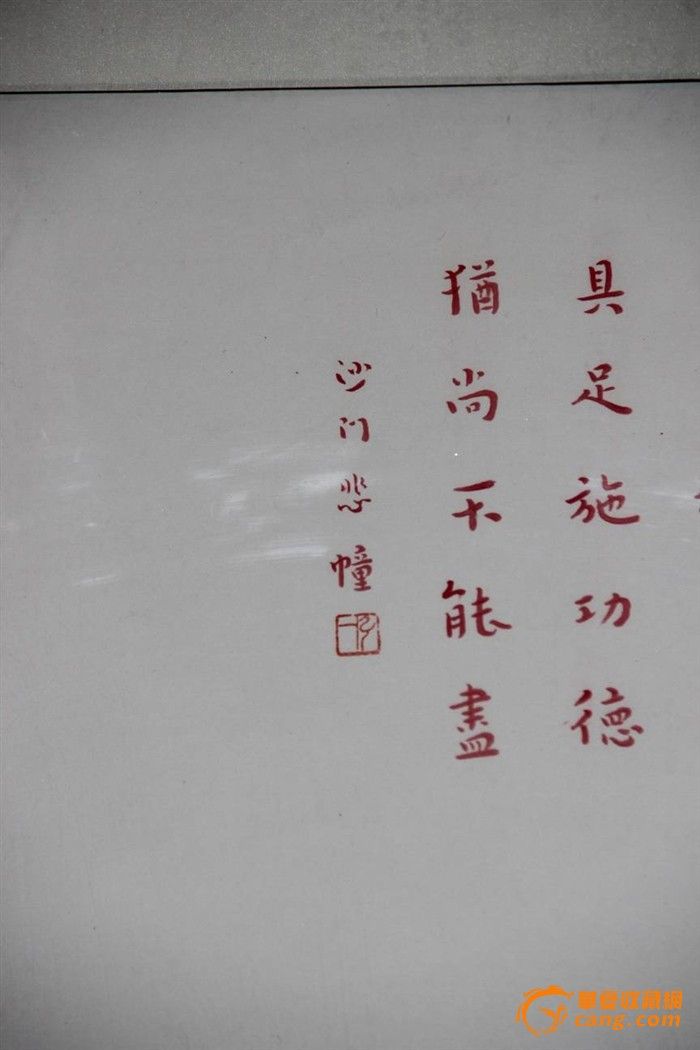 具足施功德
猶尚不能盡
沙门悲幢
華夏收藏網
cang.com